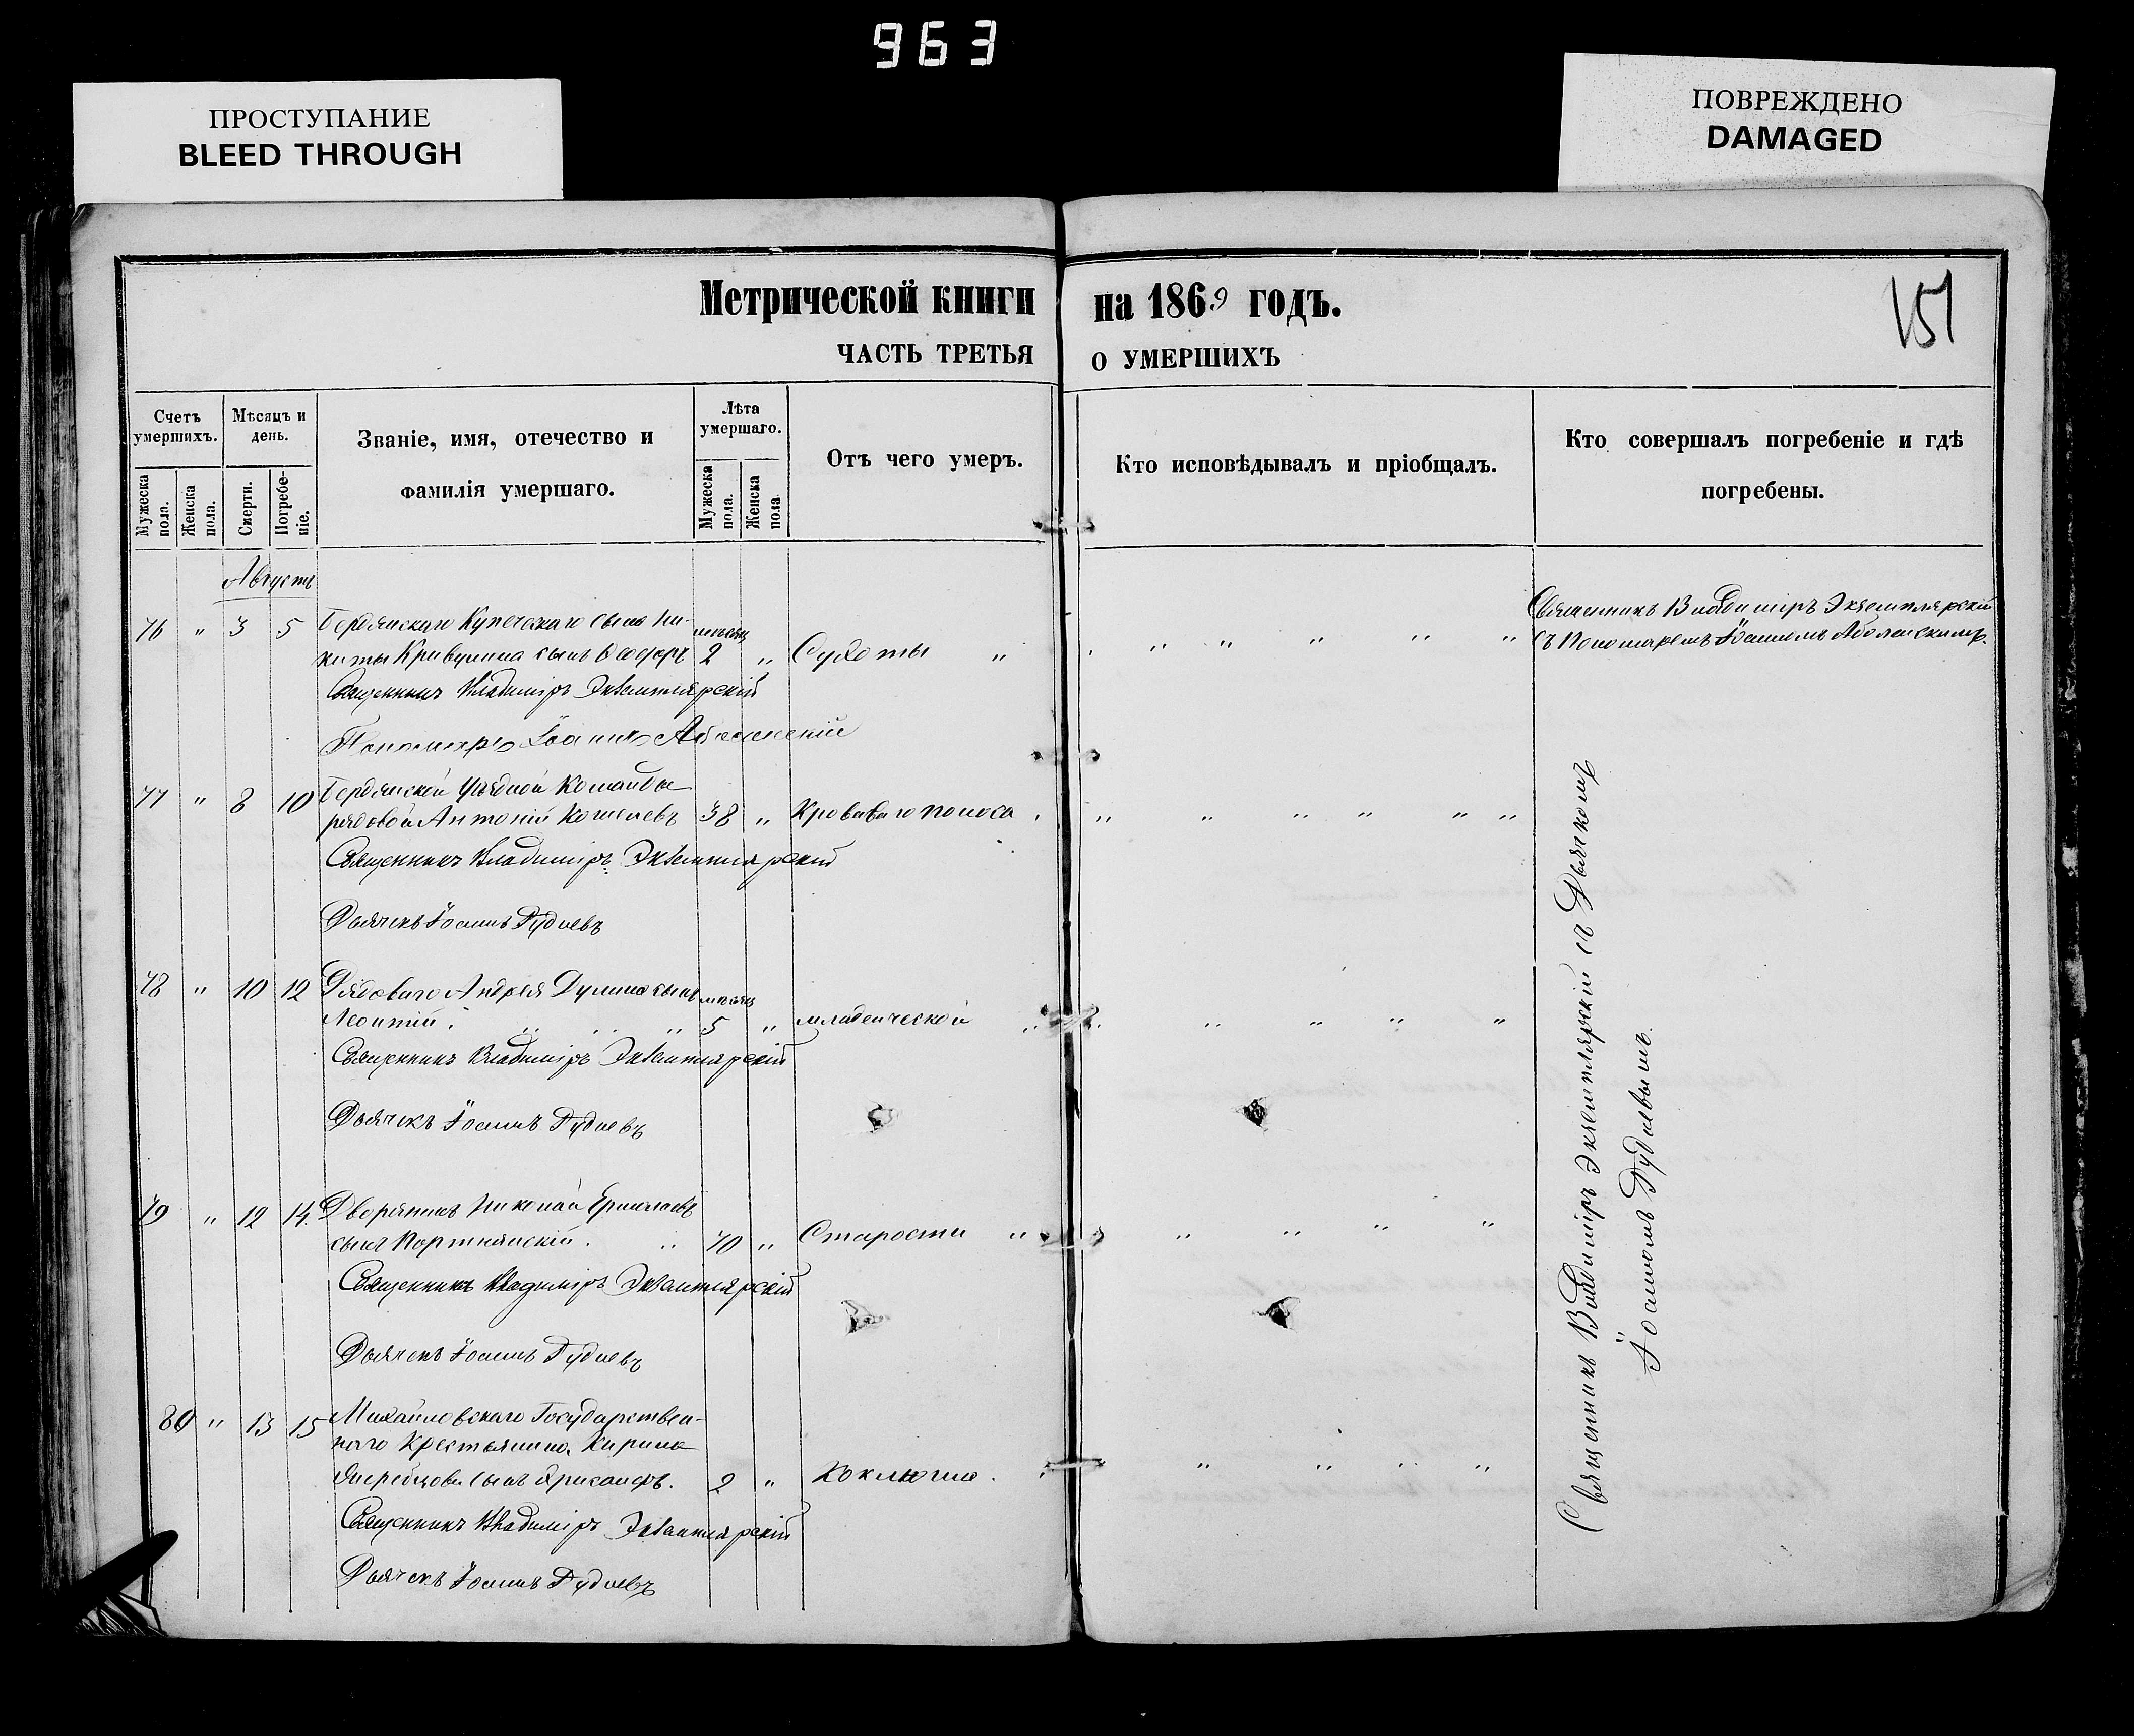 963
ПРОСТУПАНИЕ
BLEED THROUGH
ПОВРЕЖДЕНО
DAMAGED
Метрической книги на 1869 годъ.
151
ЧАСТЬ ТРЕТЬЯ О УМЕРШИХЪ
Счетъ умершихъ.
Мужеска пола.
Женска пола.
Мѣсяцъ и день.
Смерти.
Погребеніе.
Званіе, имя, отечество и фамилія умершаго.
Лѣта умершаго.
Мужеска пола.
Женска пола
Отъ чего умеръ.
Кто исповѣдывалъ и пріобщалъ.
Кто совершалъ погребеніе и гдѣ погребены.
Августъ
76 " 3 5 Бердянскаго Купеческаго сына Ни-
киты сынъ мѣсяц 2 " Сухоты "
Священникъ Владиміръ Экземплярскій
съ Пономаремъ Іоанномъ
Священникъ Владиміръ Экземплярскій
Пономарь Іоаннъ
77 " 8 10 Бердянской Уѣздной Команды
рядовой Антоній Кошелевъ 38 " Кроваваго поноса
Священникъ Владиміръ Экземплярскій
Дьячекъ Іоаннъ Гудиевъ
78 " 10 12 Рядоваго Андрея сынъ мѣсяц
Леонтій. 5 " младенческой
Священникъ Владиміръ Экземплярскій
Дьячекъ Іоаннъ Гудиевъ
79 " 12 14 Дворянинъ Николай Ермолаевъ
сынъ Портнянскій. 70 " Старости "
Священникъ Владиміръ Экземплярскій
Дьячекъ Іоаннъ Гудиевъ
80 " 13 15 Михайловскаго Государствен-
наго Крестьянина Кирила
сынъ 2 " Коклюша.
Священникъ Владиміръ Экземплярскій
Дьячекъ Іоаннъ Гудиевъ
Священникъ Владиміръ Экземплярскій съ Дьячкомъ
Іоанномъ Гудиевымъ.